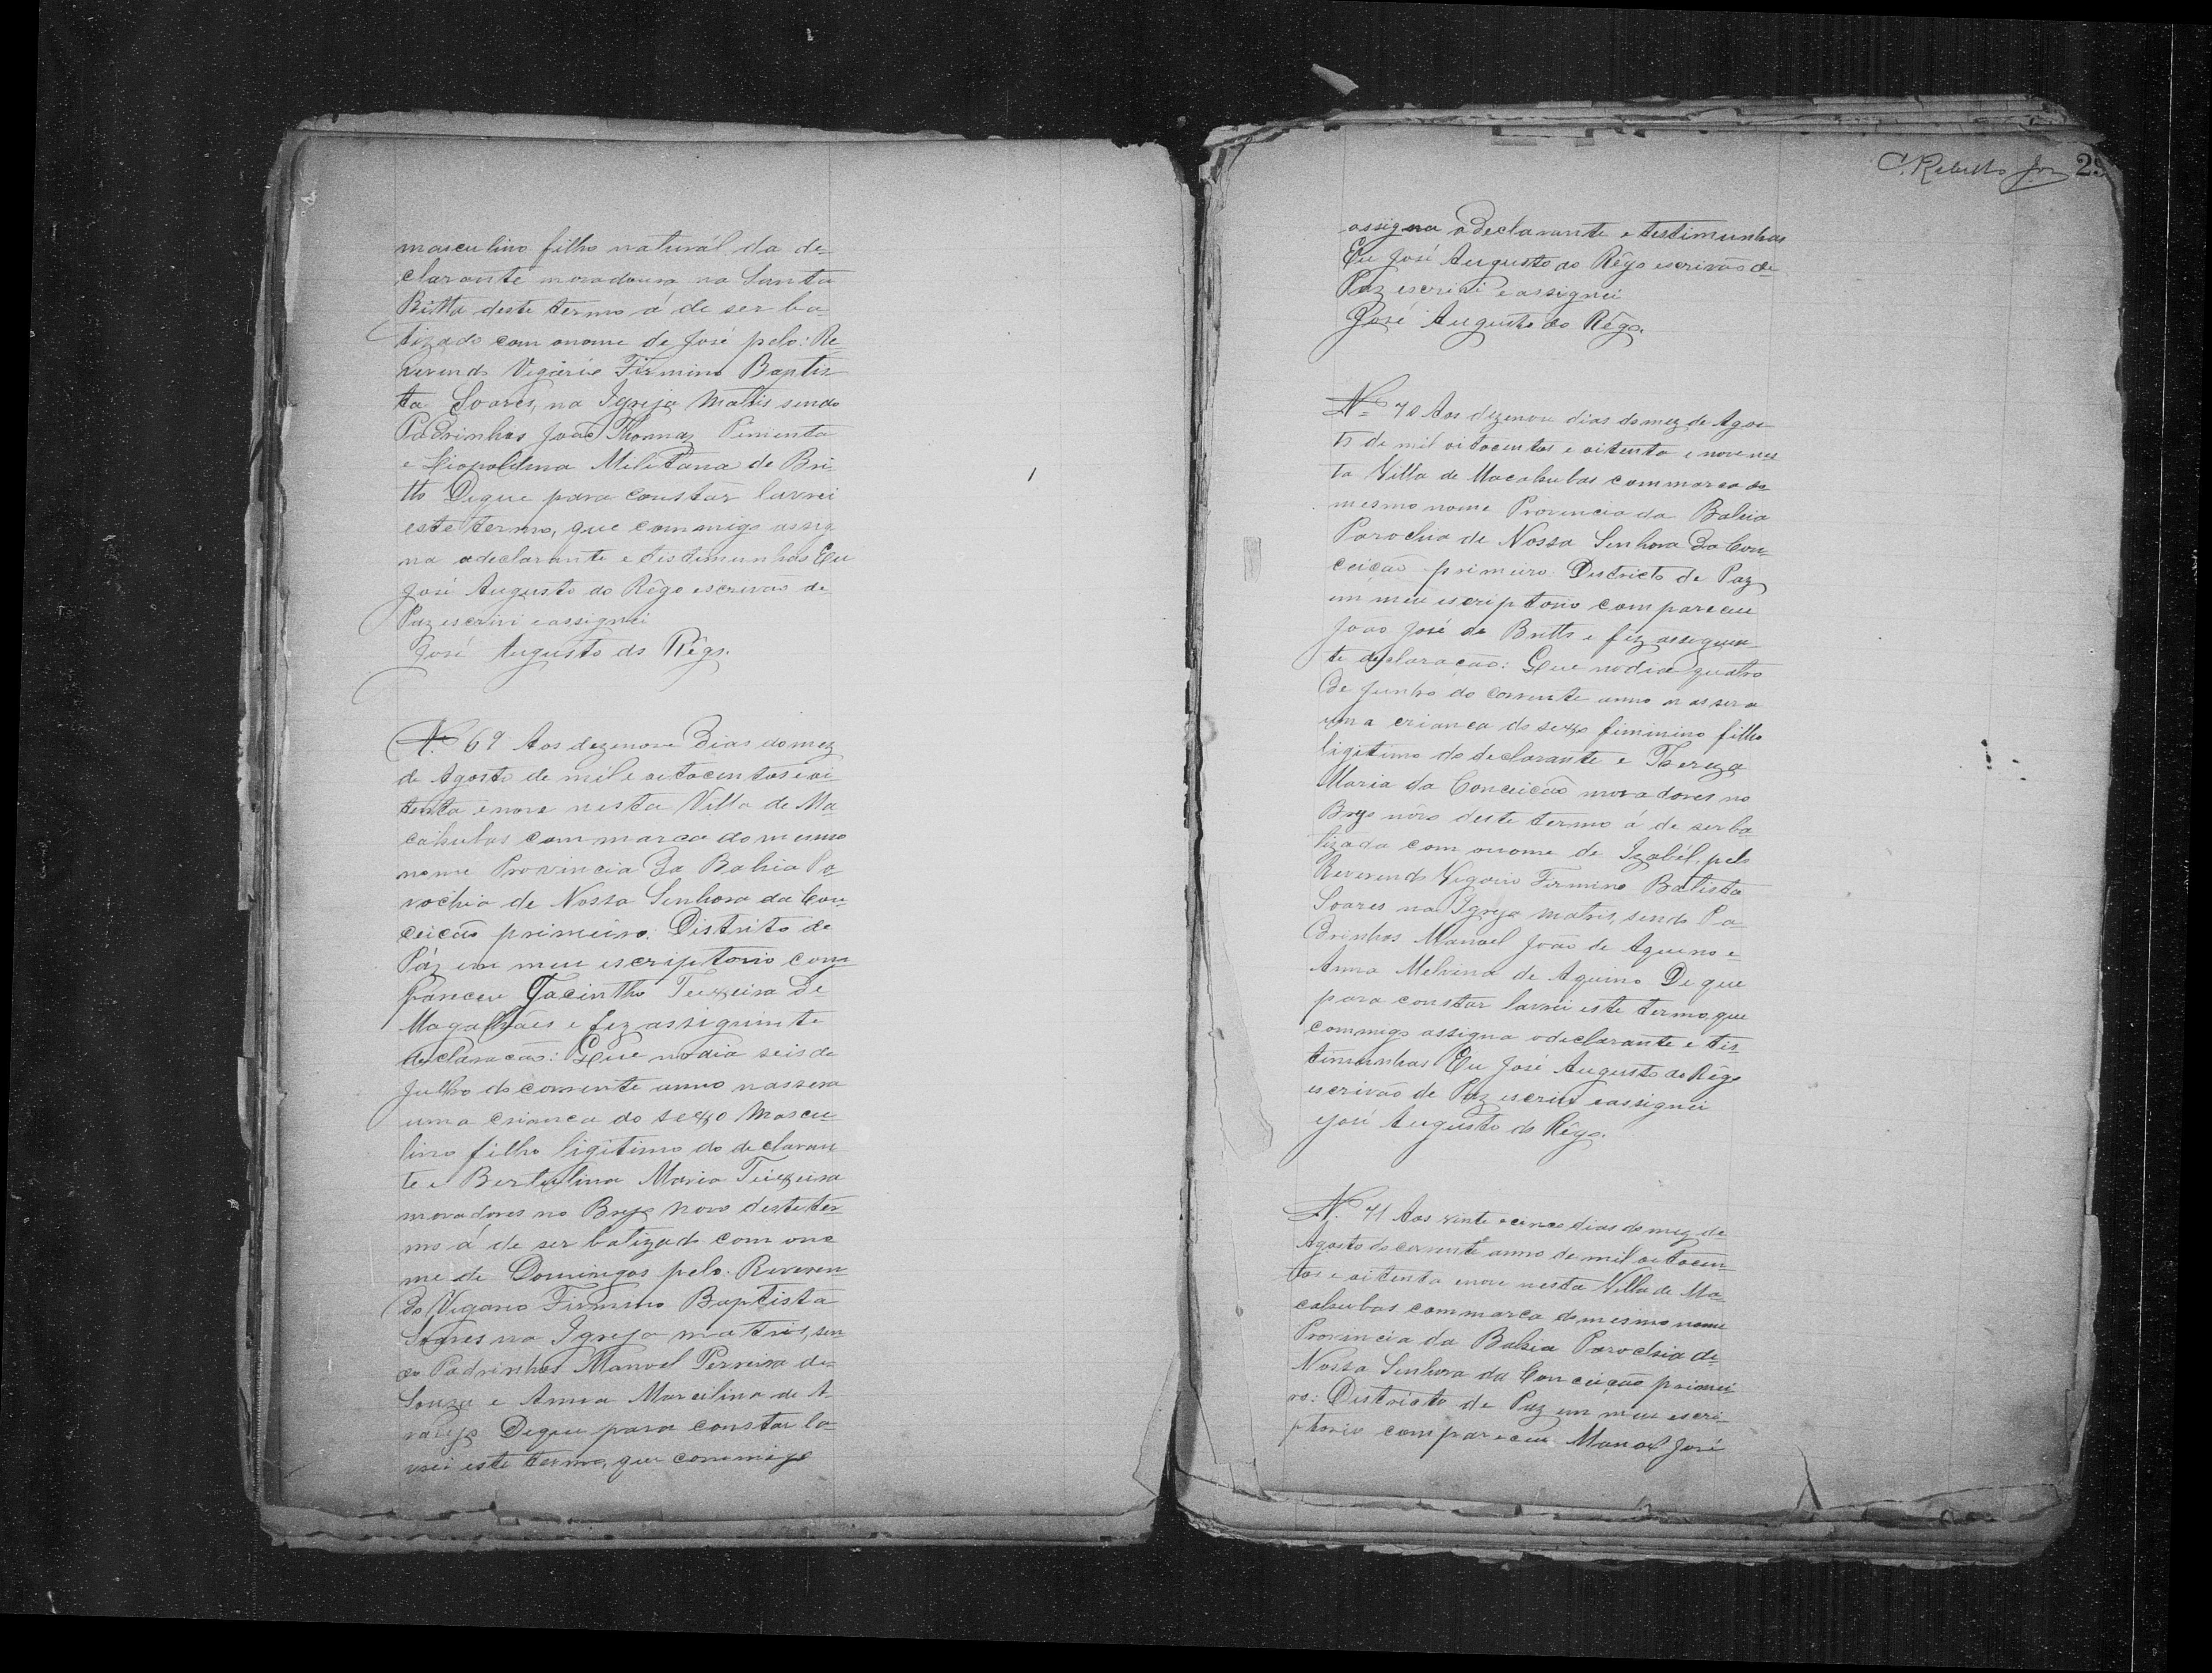 masculino filho naturál da de-
clarante moradoura na Santa
Ritta deste termo á de ser ba-
tizado com onome de José pelo: Re-
verendo Vigário Firmino Baptis-
ta Soares, na Igreja Matris sendo
Padrinhos João Thomaz Pimenta
e Liopoldina Militana de Bri-
tto Deque para constar lavrei
este termo, que commigo assig-
na adeclarante e testimunhas Eu
José Augusto do Rêgo escrivão de
Paz escrivi eassignei
José Augusto do Rêgo.
N. 69 Aos dezenove Dias domez
de Agosto de mil e oitocentos e oi-
tenta e nove nesta Villa de Ma-
cahubas commarca do mesmo
nome Provincia Da Bahia Pa-
rochia de Nossa Senhora da Con-
ceicão primeiro: Distrito de
Páz em meu escriptorio com-
pareceu Jacintho Teixeira De
Magalhães e fez assiguinte
declaracão: Que nodia seis de
Julho do corrente anno nassera
uma crianca do sexo Mascu-
lino filho ligitimo do declaran-
te e Bertulina Maria Teixeira
moradores no Brejo Novo deste ter-
mo á de ser batizado com ono
me de Domingos pelo: Reveren-
do Vigario Firmino Baptista
Soares na Igreja matris, sen-
do Padrinhos Manoel Perreira de
Souza e Anna Marcilina de A-
raujo Deque para constar la-
vrei este termo, que commigo
C. Rebello Jor 29
assigna odeclarante e testimunhas
Eu José Augusto do Rêgo escrivão de
Paz escrivi eassignei
José Augusto do Rêgo.
N. 70 Aos dezenove dias do mez de Agos-
to de mil oitocentos e oitenta e nove nes
ta Villa de Macahubas commarca do
mesmo nome Provincia da Bahia
Parochia de Nossa Senhora Da Con-
ceição primeiro: Districto de Paz
em meu escriptorio compareceu
João José de Britto e fez assiguin-
te declaração: Que nodia quatro
de Junho do corrente anno nassera
uma crianca do sexo feminino filha
ligitima do declarante e Thereza
Maria da Conceicão moradores no
Brejo nôvo deste termo á de ser ba-
tizada com onome de Izabél, pelo
Reverendo Vigario Firmino Batista
Soares na Igreja matris, sendo Pa-
drinhos Manoel João de Aquino e
Anna Melvina de Aquino De que
para constar lavrei este termo, que
commigo assigna odeclarante e tes-
timunhas Eu José Augusto do Rêgo
escrivão de Paz escrivi eassignei
José Augusto do Rêgo.
N. 71 Aos vinte e cinco dias do mez de
Agosto do corrente anno de mil oitocen-
tos e oitenta enove nesta Villa de Ma-
cahubas commarca do mesmo nome
Provincia da Bahia Parochia de
Nossa Senhora da Conceição primei-
ro: Districto de Paz em meu escri-
ptorio compareceu Manoel José